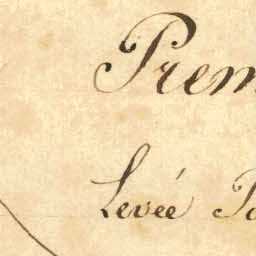 Prem
Levée